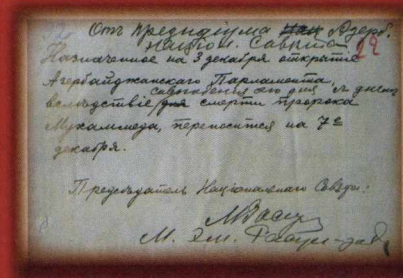 Отъ Президіума Азерб.
Націон. Совѣта
22
Назначенное на 3 декабря открытіе
Азербайджанскаго Парламента,
совпаденія его дня съ днемъ
вслѣдствіе смерти пророка
Мухаммеда, переносится на 7е
декабря.
Предсѣдатель Національнаго Совѣта:
М. Эм. Расул-заде